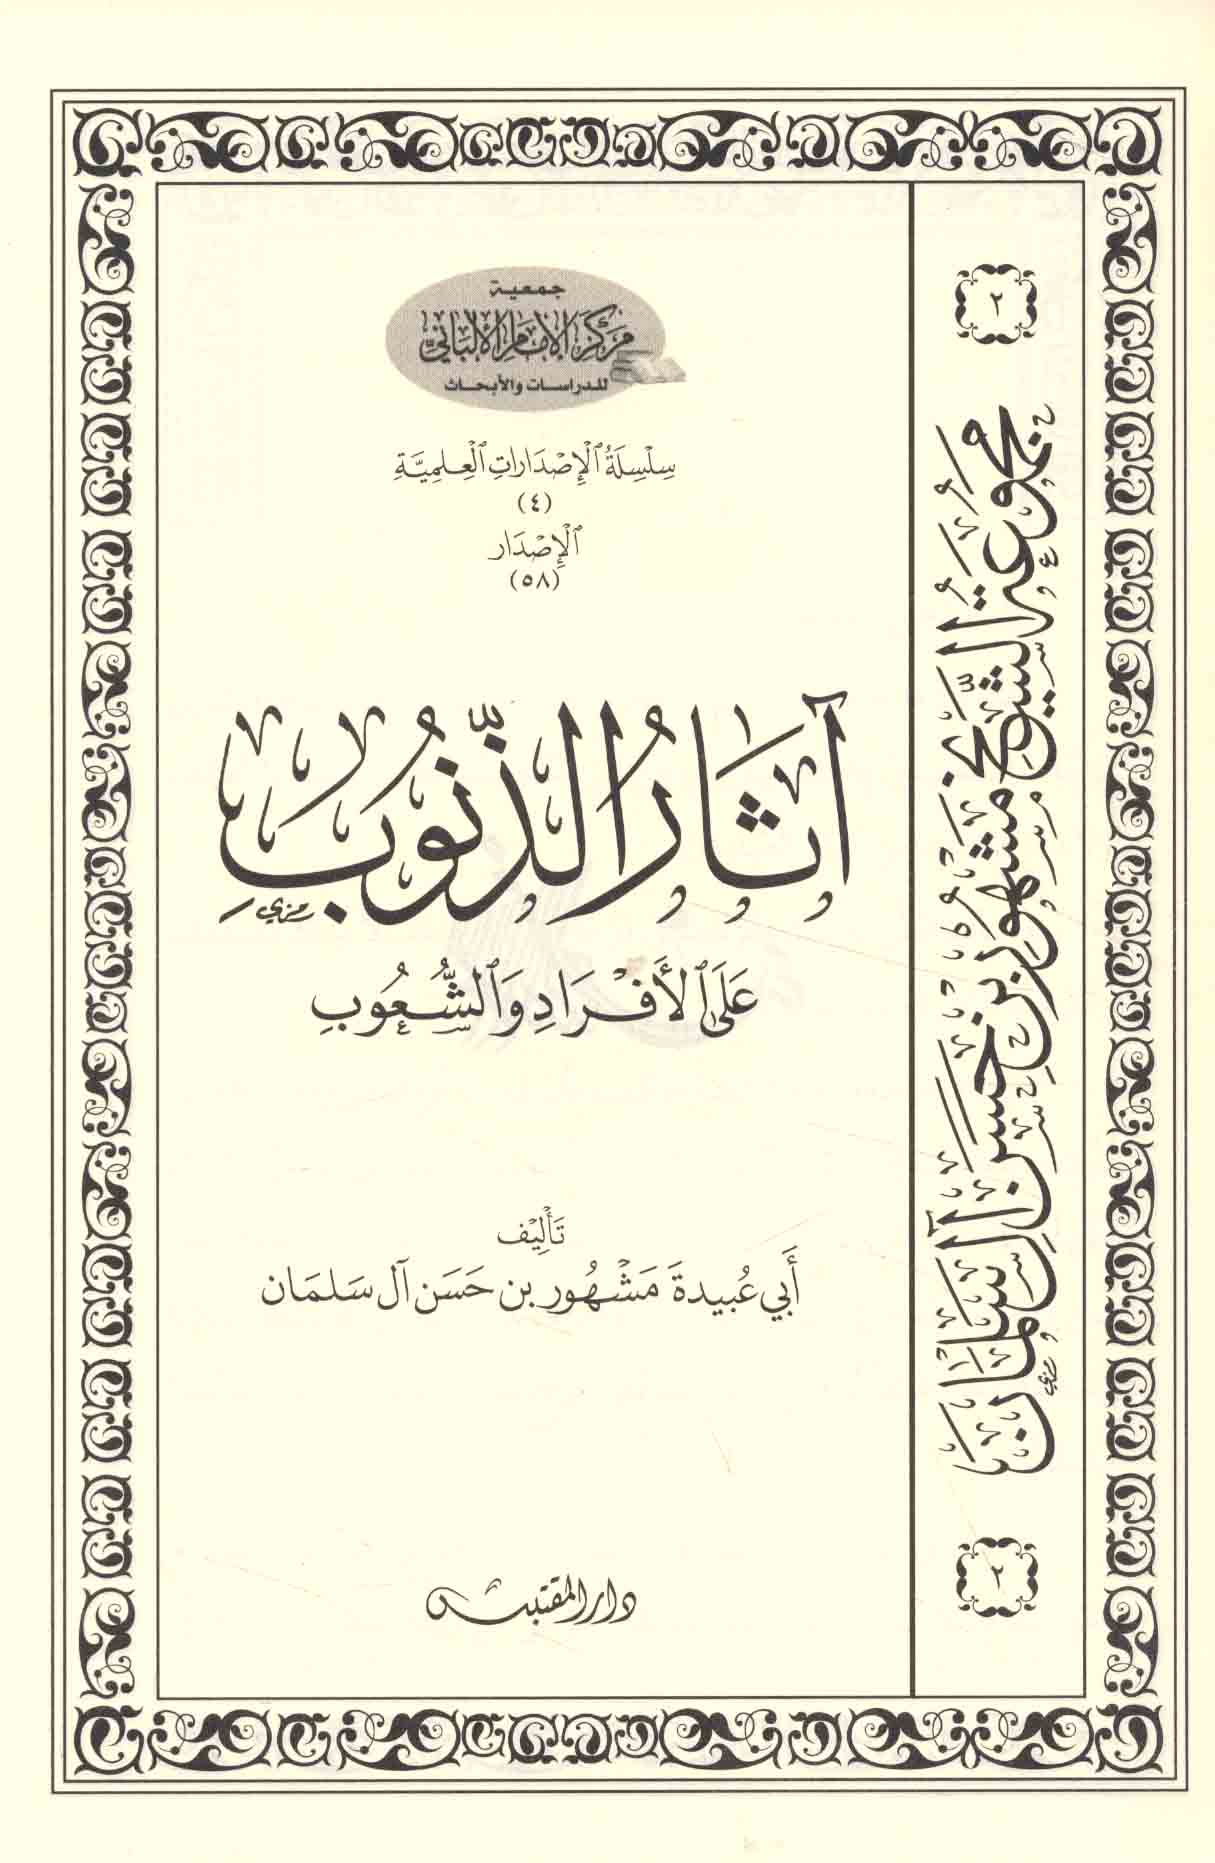 جمعية
مركز الإمام الألباني
للدراسات والأبحاث
سِلْسِلَةُ ٱلْإِصْدَارَاتِ ٱلْعِلمِيَّةِ
(٤)
ٱلْإِصْدَار
(٥٨)
آثَارُ الذُّنُوبِ
عَلَى ٱلْأَفْرَادِ وَٱلشُّعُوبِ
تَأْلِيْف
أَبِي عُبيدةَ مَشْهُور بن حَسَن آل سَلمَان
دار المقتبس
٢
مجموعة الشيخ مشهور بن حسن آل سلمان
٢